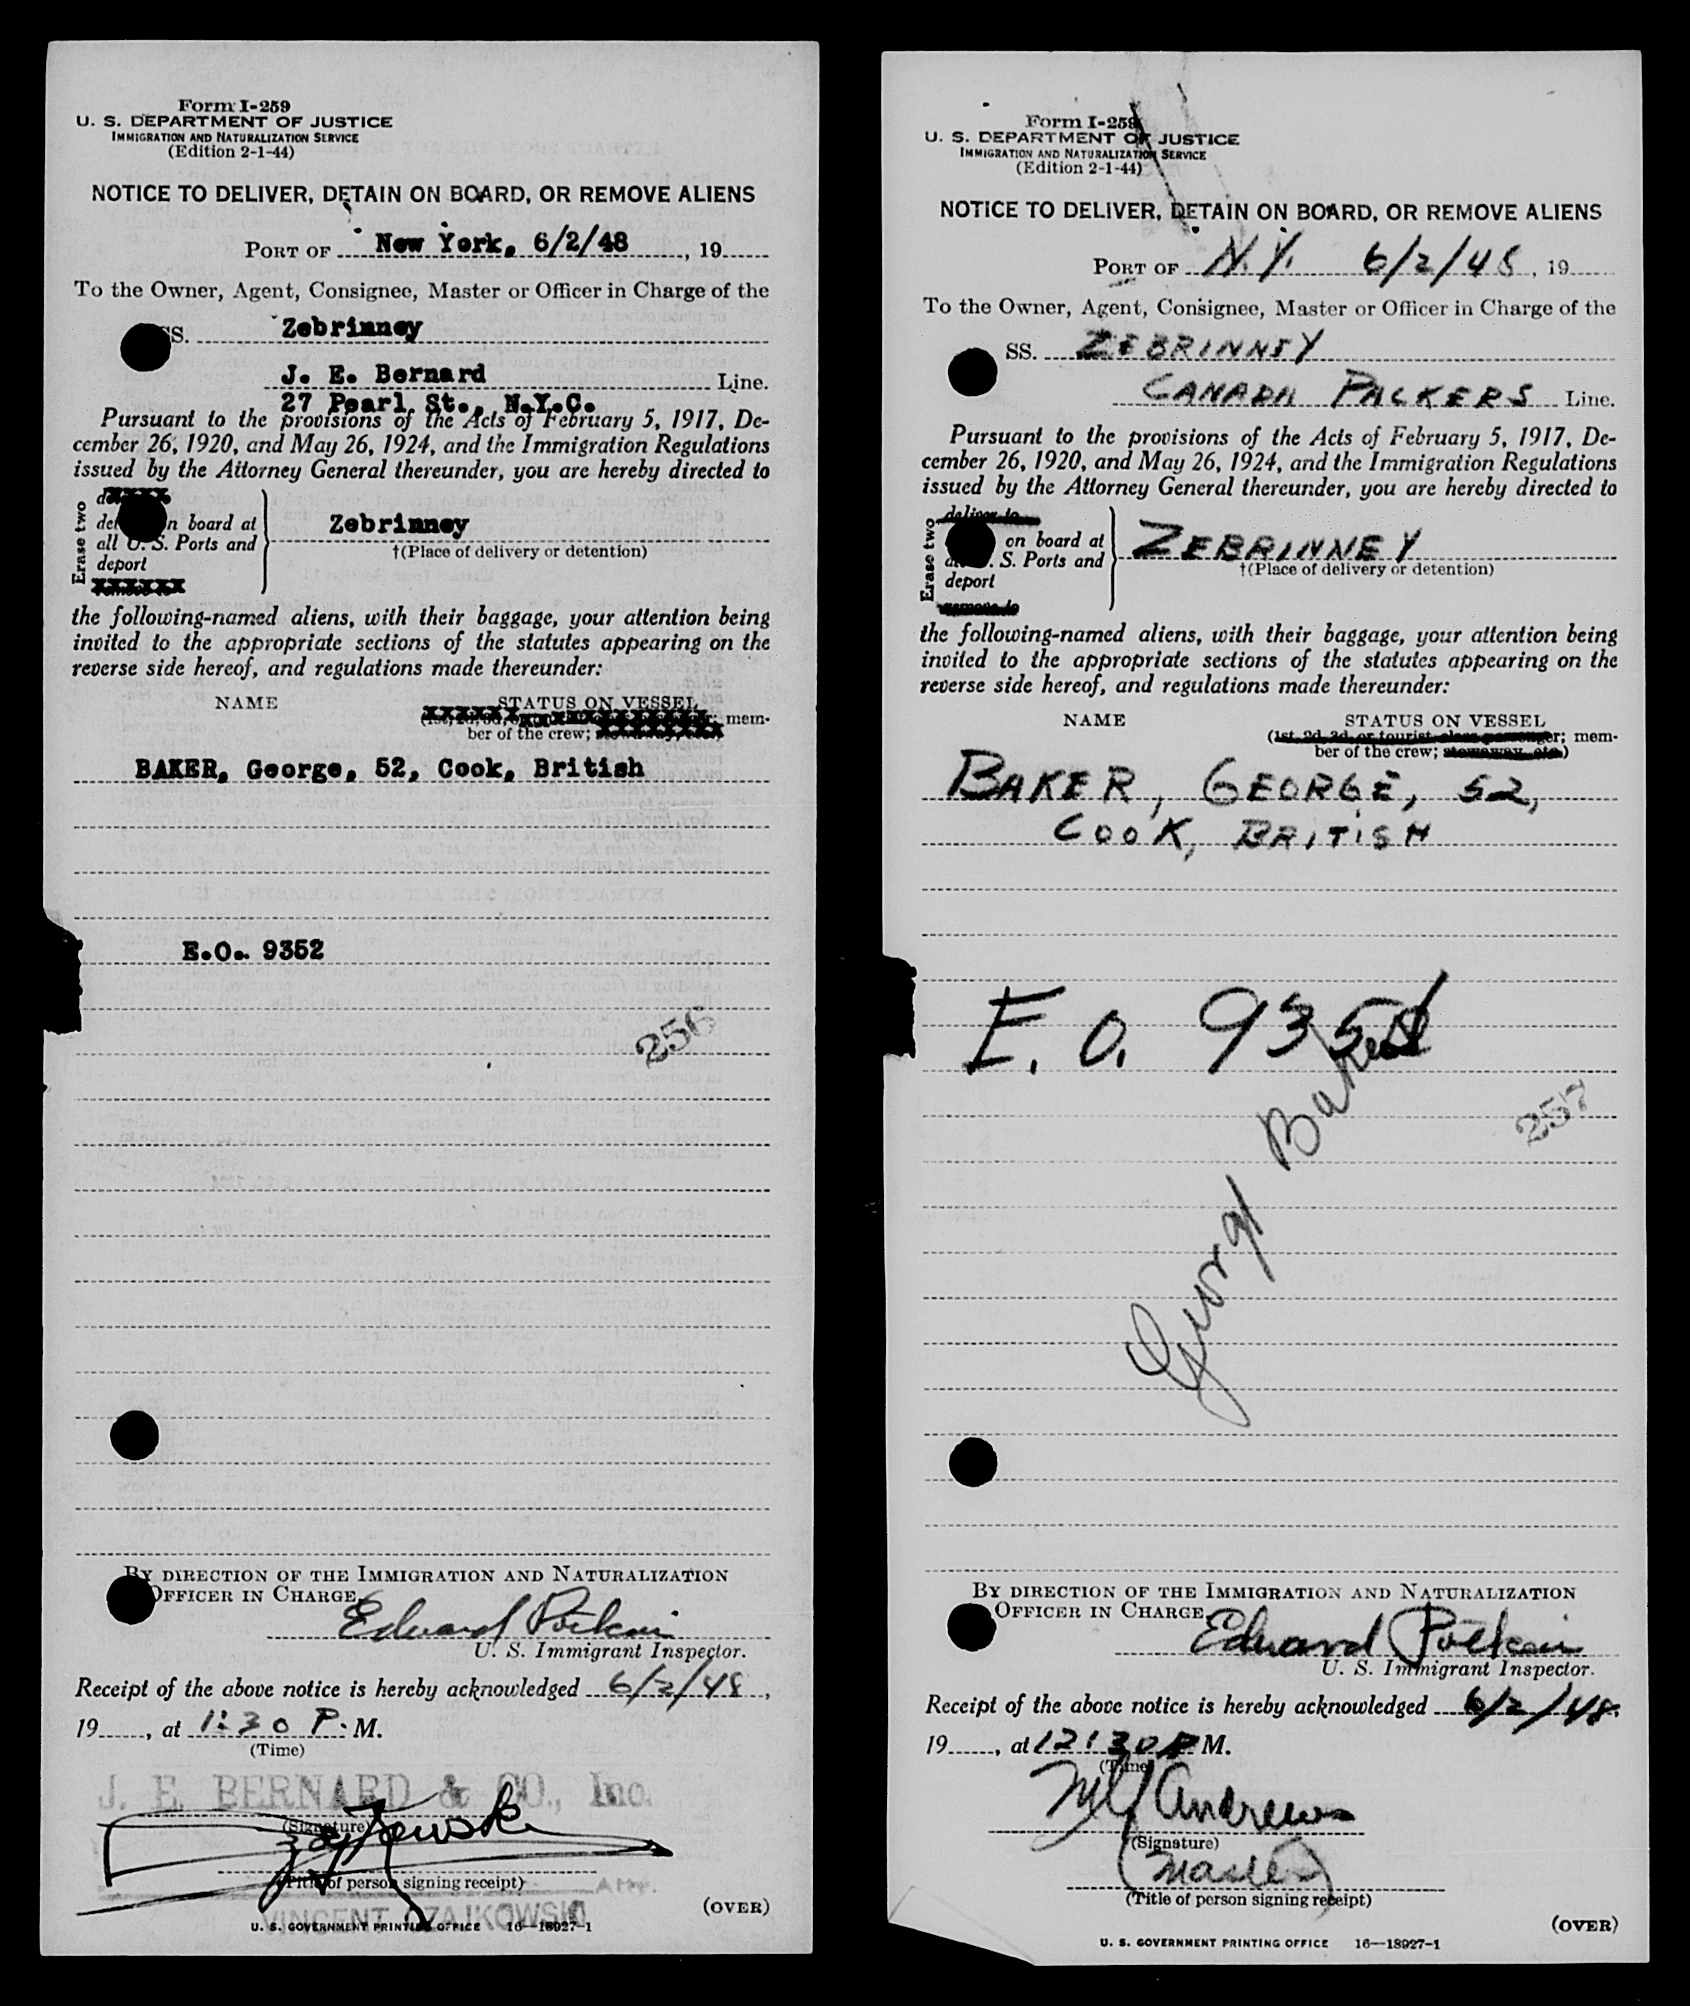 Form I-259
U. S. DEPARTMENT OF JUSTICE
IMMIGRATION AND NATURALIZATION SERVICE
(Edition 2-1-44)
NOTICE TO DELIVER, DETAIN ON BOARD, OR REMOVE ALIENS
PORT OF New York, 6/2/48, 19
To the Owner, Agent, Consignee, Master or Officer in Charge of the
SS. Zebrinney
J. E. Bernard Line.
27 Pearl St., N.Y.C.
Pursuant to the provisions of the Acts of February 5, 1917, De-
cember 26, 1920, and May 26, 1924, and the Immigration Regulations
issued by the Attorney General thereunder, you are hereby directed to
Erase two
on board at
all U. S. Ports and
deport
Zebrinney
†(Place of delivery or detention)
the following-named aliens, with their baggage, your attention being
invited to the appropriate sections of the statutes appearing on the
reverse side hereof, and regulations made thereunder:
NAME STATUS ON VESSEL
mem-
ber of the crew;
BAKER, George, 52, Cook, British
E.O. 9352
256
BY DIRECTION OF THE IMMIGRATION AND NATURALIZATION
OFFICER IN CHARGE
Edward
U. S. Immigrant Inspector.
Receipt of the above notice is hereby acknowledged 6/2/48,
19, at 1:30 P. M.
(Time)
J. E. BERNARD & CO., Inc.
(Signature)
(Title of person signing receipt)
Atty.
VINCENT CZAJKOWSKI
(OVER)
U. S. GOVERNMENT PRINTING OFFICE 16—18927-1
Form I-259
U. S. DEPARTMENT OF JUSTICE
IMMIGRATION AND NATURALIZATION SERVICE
(Edition 2-1-44)
NOTICE TO DELIVER, DETAIN ON BOARD, OR REMOVE ALIENS
PORT OF N.Y. 6/2/48, 19
To the Owner, Agent, Consignee, Master or Officer in Charge of the
SS. ZEBRINNEY
CANADA PACKERS Line.
Pursuant to the provisions of the Acts of February 5, 1917, De-
cember 26, 1920, and May 26, 1924, and the Immigration Regulations
issued by the Attorney General thereunder, you are hereby directed to
Erase two
deliver to
on board at
S. Ports and
deport
remove to
ZEBRINNEY
†(Place of delivery or detention)
the following-named aliens, with their baggage, your attention being
invited to the appropriate sections of the statutes appearing on the
reverse side hereof, and regulations made thereunder:
NAME STATUS ON VESSEL
(1st, 2d, 3d, or tourist class passenger; mem-
ber of the crew; stowaway, etc.)
BAKER, GEORGE, 52,
COOK, BRITISH
E. O. 9352
257
George Baker
BY DIRECTION OF THE IMMIGRATION AND NATURALIZATION
OFFICER IN CHARGE
Edward
U. S. Immigrant Inspector.
Receipt of the above notice is hereby acknowledged 6/2/48,
19, at 12:30 P M.
(Time)
Andrews
(Signature)
(Master)
(Title of person signing receipt)
(OVER)
U. S. GOVERNMENT PRINTING OFFICE 16—18927-1